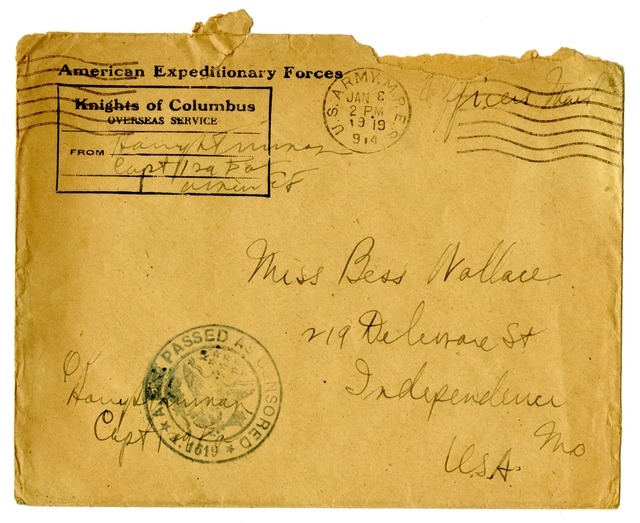 American Expeditionary Forces
Knights of Columbus
OVERSEAS SERVICE
FROM Harry S Truman
Capt 129 FA
U.S. ARMY M.P.E.S.
JAN 8
2 PM
1919
914
Officers Mail
Miss Bess Wallace
219 Delaware St
Independence
Mo
USA
A.E.F. PASSED AS CENSORED
OK
Harry S Truman
Capt 129 FA